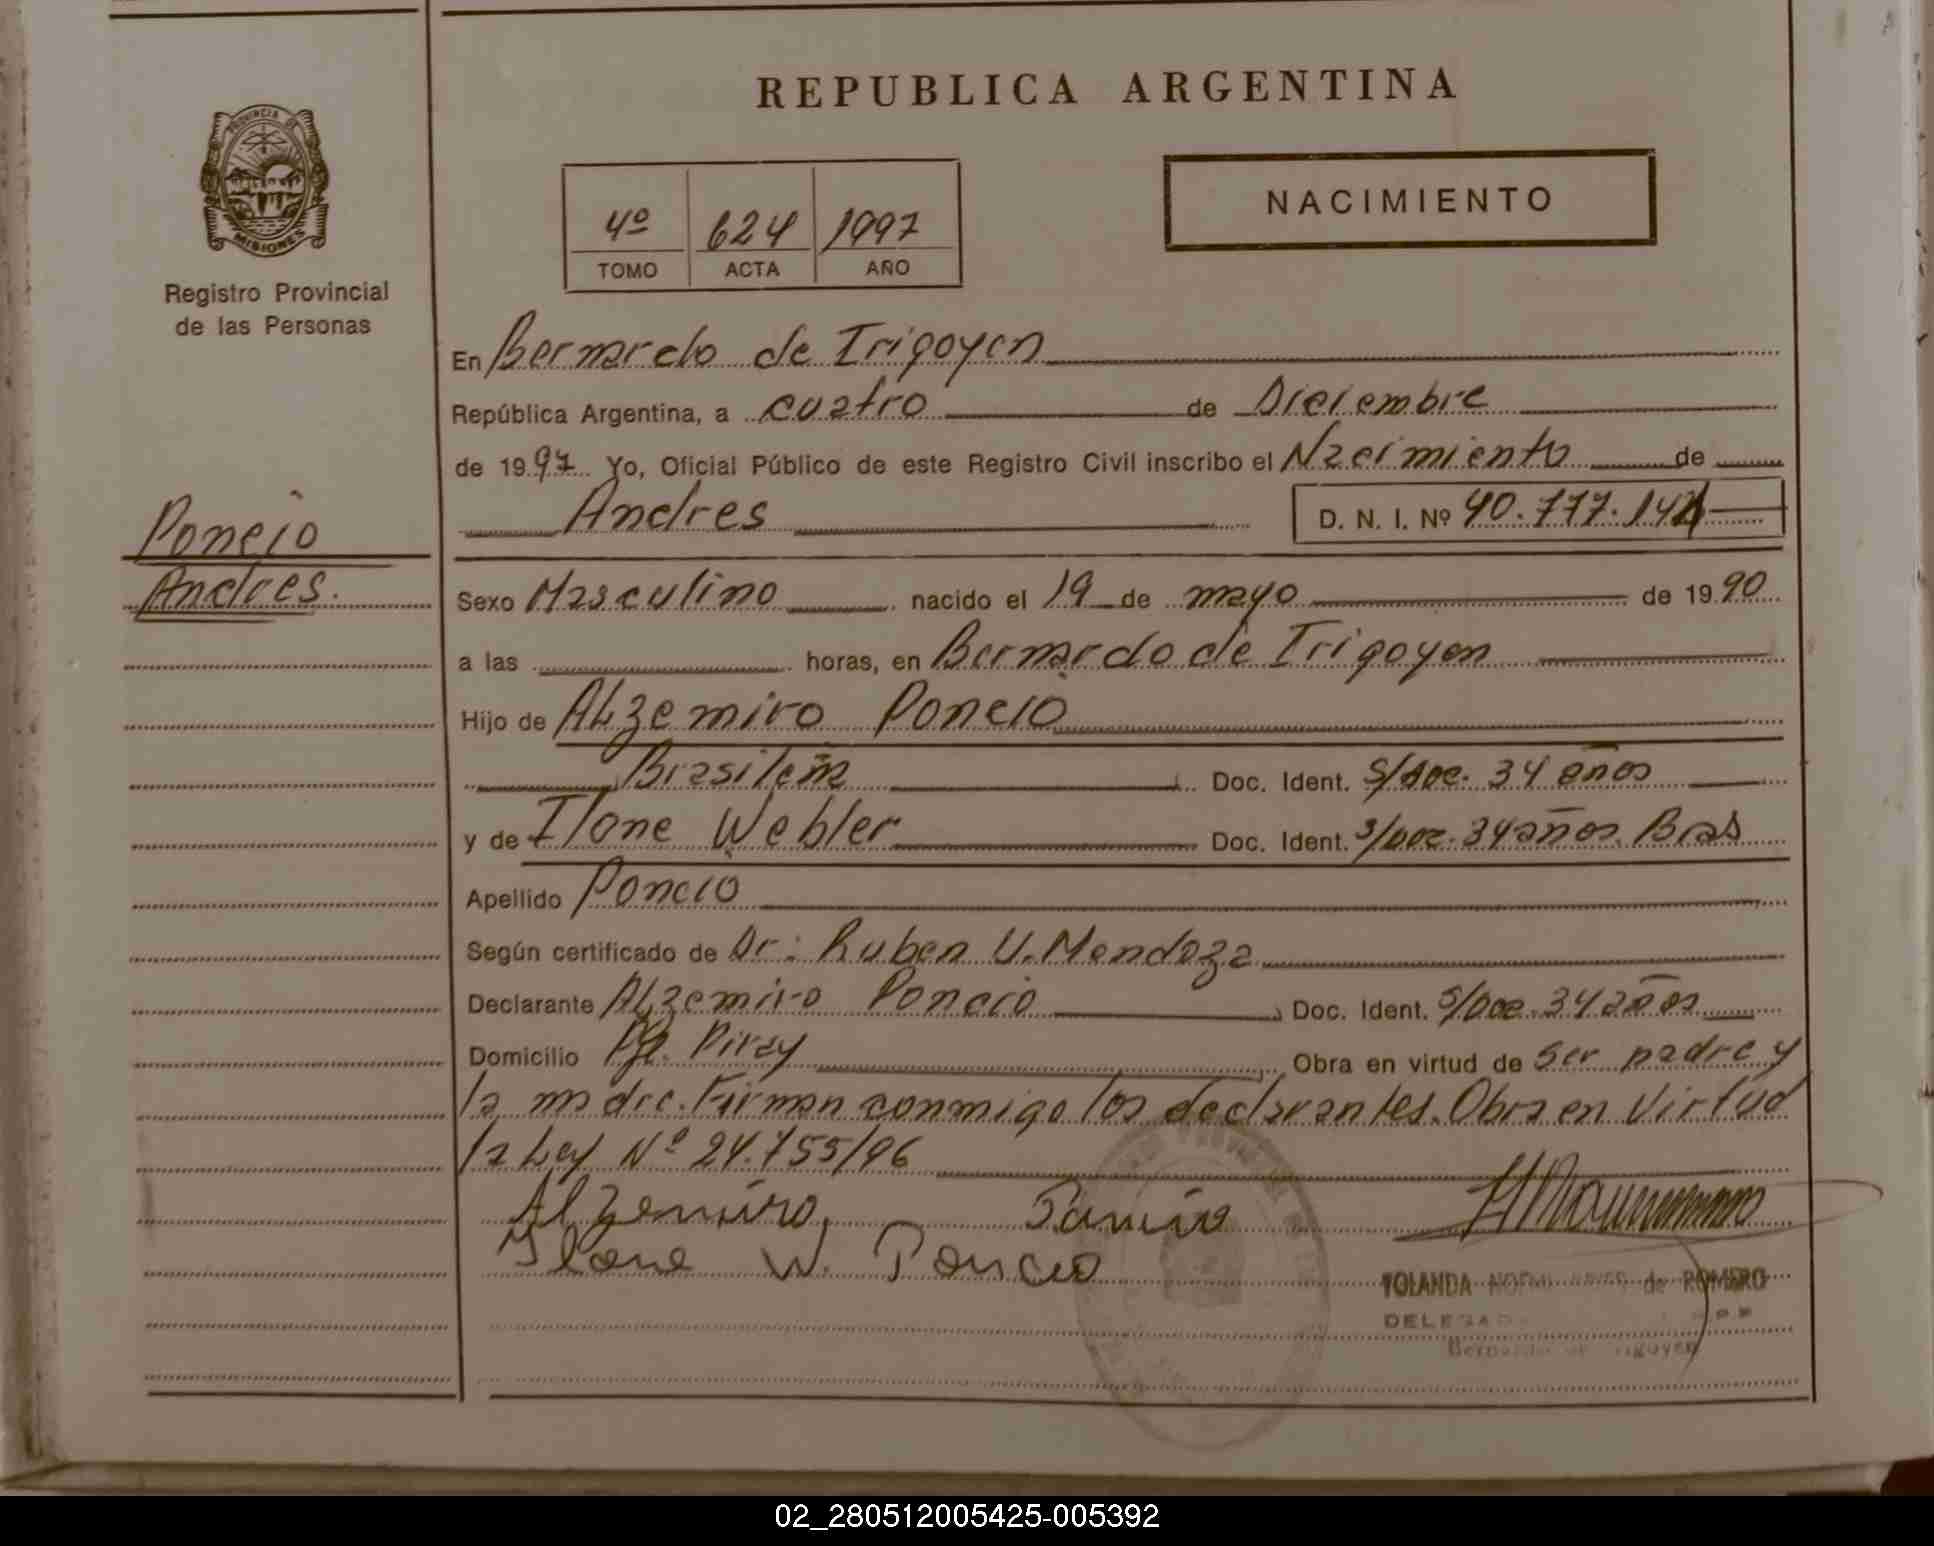 REPUBLICA ARGENTINA
PROVINCIA DE
MISIONES
Registro Provincial
de las Personas
4º 624 1997
TOMO ACTA AÑO
NACIMIENTO
En Bernardo de Irigoyen
República Argentina, a cuatro de Diciembre
de 1997 Yo, Oficial Público de este Registro Civil inscribo el Nacimiento de
Andres D. N. I. Nº 40.777.14
Poncio
Andres.
Sexo Masculino nacido el 19 de mayo de 1990
a las horas, en Bernardo de Irigoyen
Hijo de Alzemiro Poncio
Brasileña Doc. Ident. S/Doc. 34 años
y de Ilone Webler Doc. Ident. S/Doc. 34 años. Bras
Apellido Poncio
Según certificado de Dr: Ruben U. Mendoza
Declarante Alzemiro Poncio Doc. Ident. S/Doc. 34 años
Domicilio Pje. Piray Obra en virtud de ser padre y
la madre. Firman conmigo los declarantes. Obra en Virtud
la Ley Nº 24.755/96
Alzemiro
Ilone W. Poncio
YOLANDA de ROMERO
Bernardo de Irigoyen
02_280512005425-005392